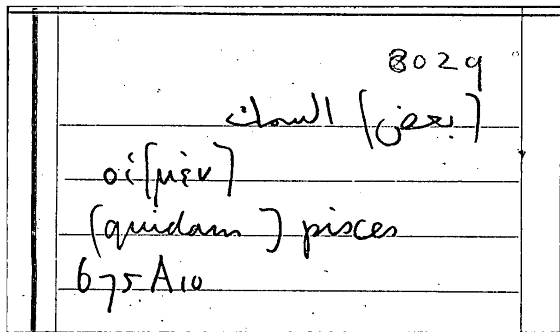 8029
(بعض) السمك
οἱ [μὲν]
(quidam) pisces
675 A10